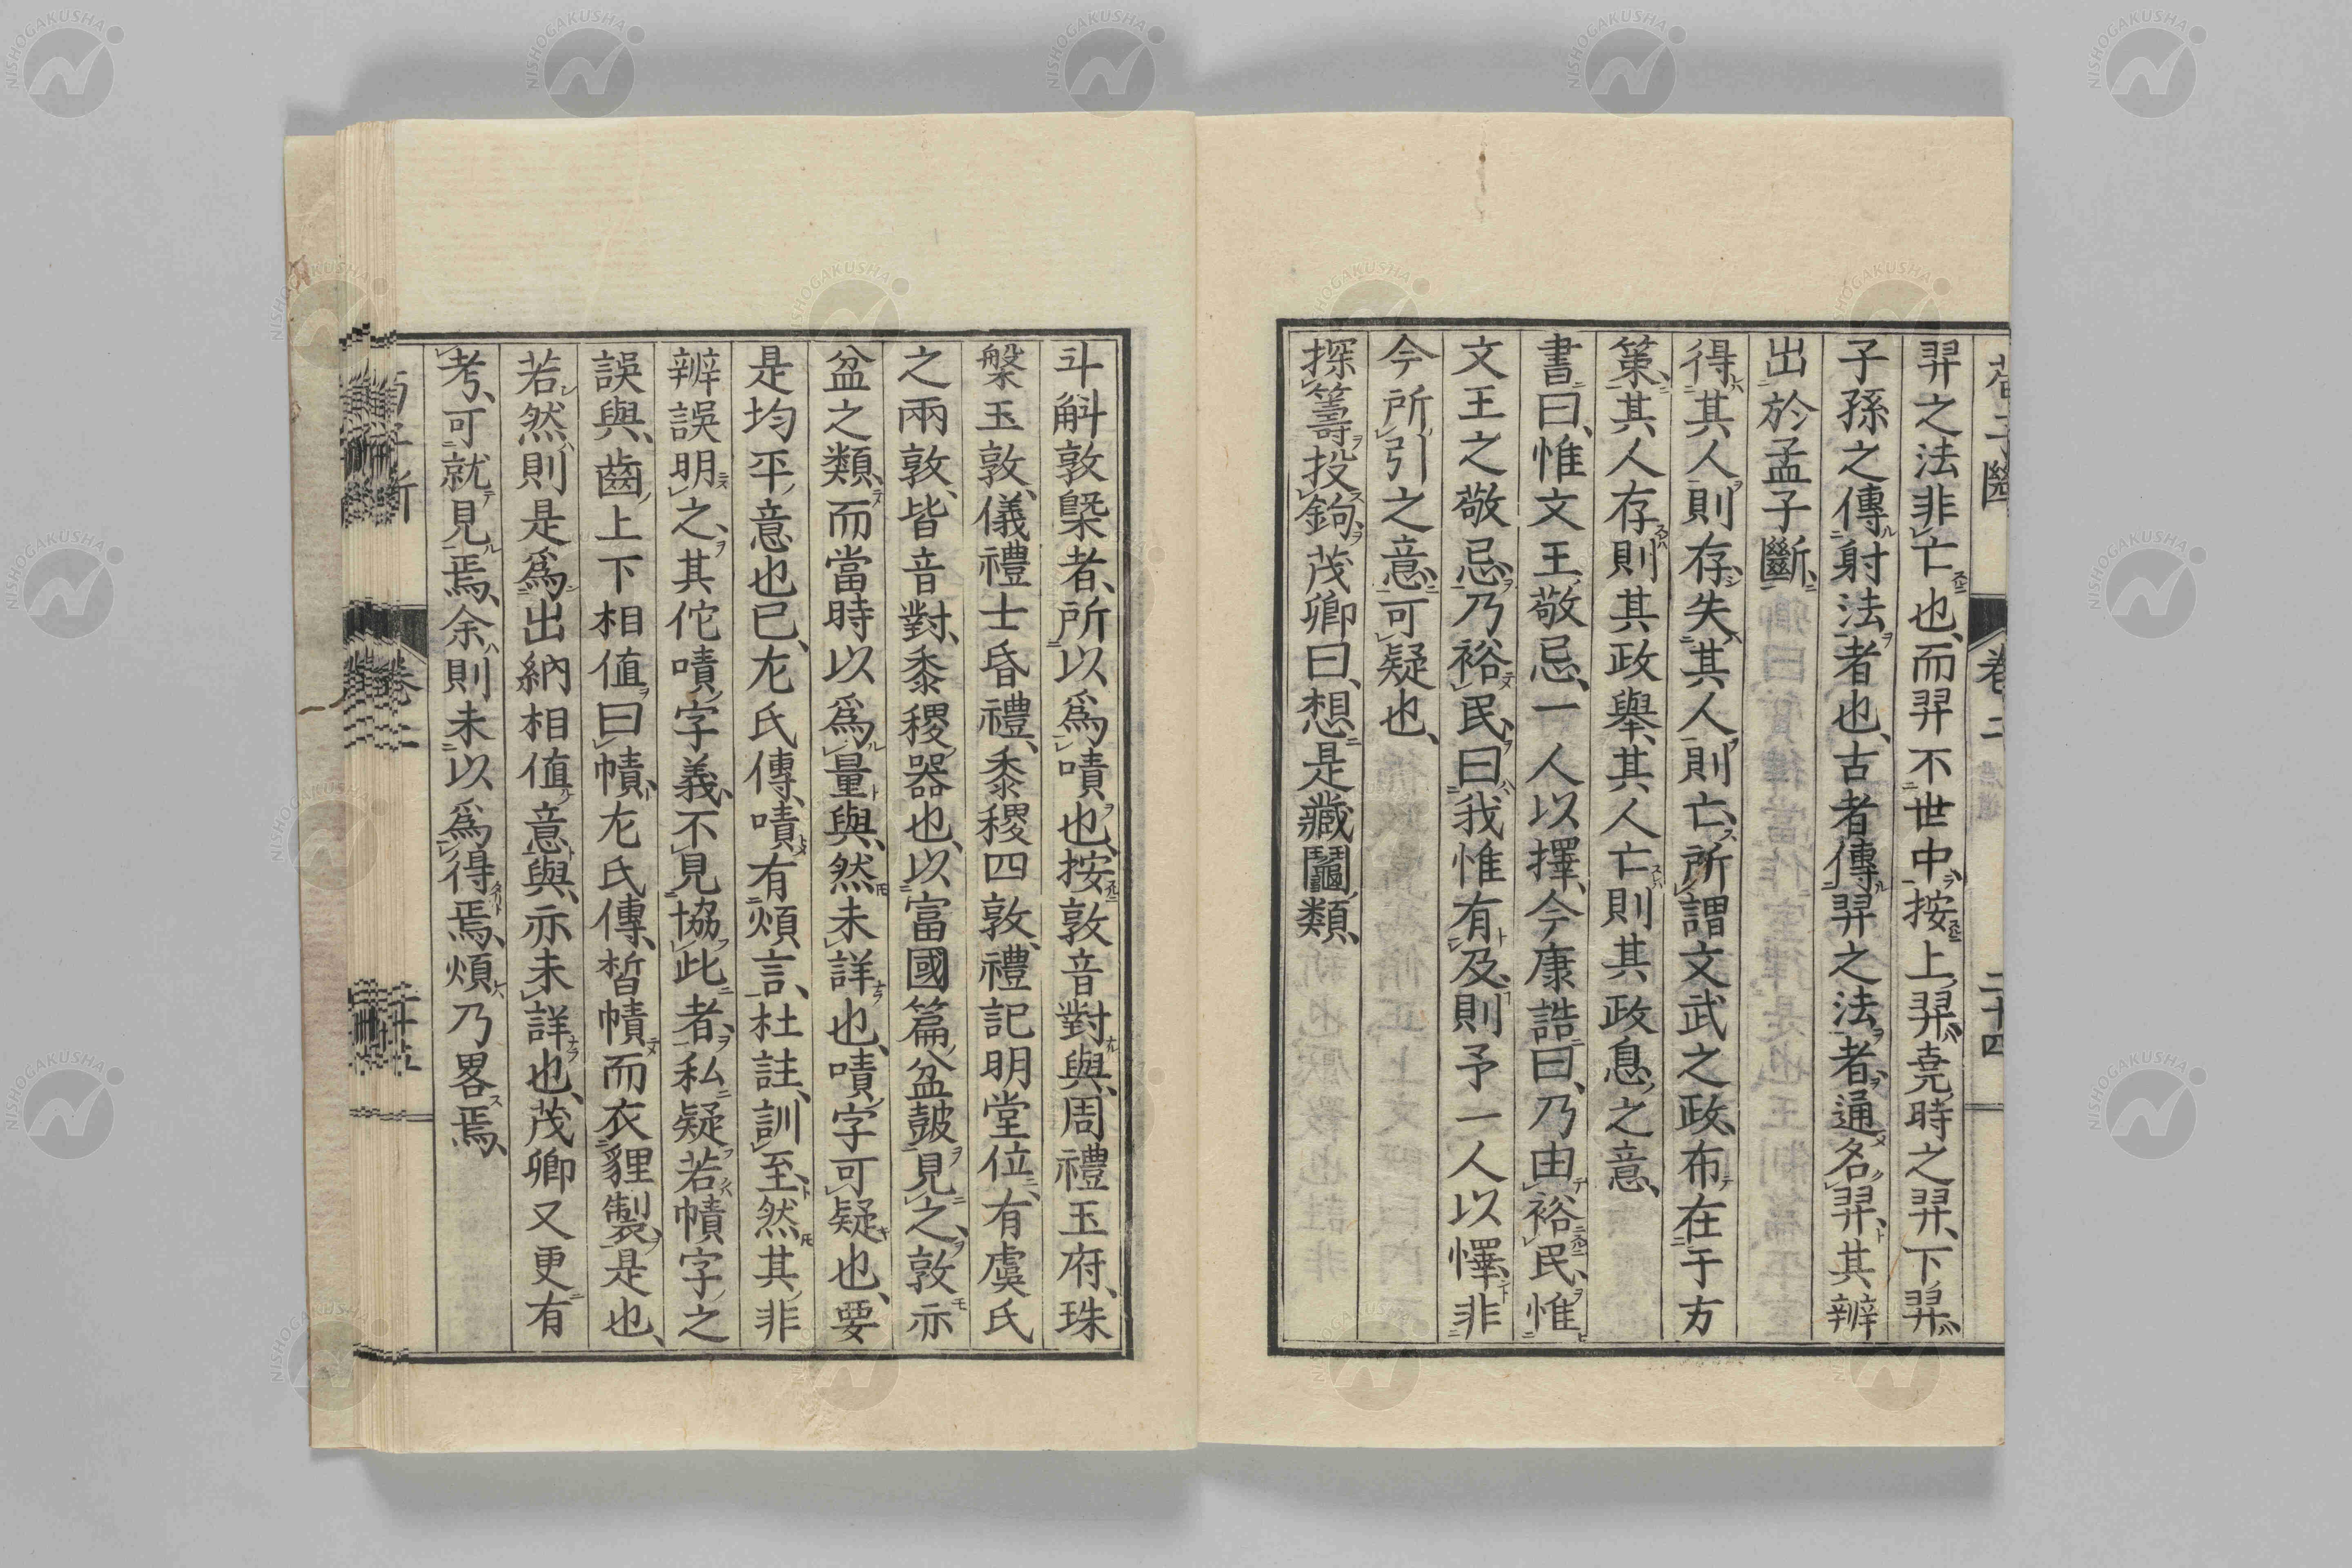 羿之法非亡也、而羿不世中、按上羿、堯時之羿、下羿、
子孫之傳射法者也、古者傳羿之法者、通名羿、其辨
出於孟子斷、
得其人則存、失其人則亡、所謂文武之政、布在于方
策、其人存則其政舉、其人亡則其政息之意、
書曰、惟文王敬忌、一人以擇、今康誥曰、乃由裕民、惟
文王之敬忌、乃裕民、曰我惟有及、則予一人以懌、非
今所引之意、可疑也、
探籌投鉤、茂卿曰、想是藏鬮類、
卷二
二十四
斗斛敦槩者、所以爲嘖也、按敦音對與、周禮玉府、珠
槃玉敦、儀禮士昏禮、黍稷四敦、禮記明堂位、有虞氏
之兩敦、皆音對、黍稷器也、以富國篇、盆皷見之、敦亦
盆之類、而當時以爲量與、然未詳也、嘖字可疑也、要
是均平意也已、左氏傳、嘖有煩言、杜註、訓至、然其非
辨誤明之、其佗嘖字義、不見協此者、私疑若幘字之
誤與、齒上下相値曰幘、左氏傳、皙幘而衣貍製、是也、
若然、則是爲出納相値意與、亦未詳也、茂卿又更有
考、可就見焉、余則未以爲得焉、煩乃畧焉、
卷二